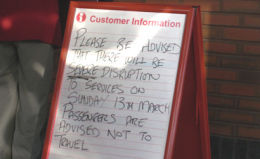 i Customer Information
PLEASE BE ADVISED
THAT THERE WILL BE
SEVERE DISRUPTION
TO SERVICES ON
SUNDAY 13TH MARCH
PASSENGERS ARE
ADVISED NOT TO
TRAVEL